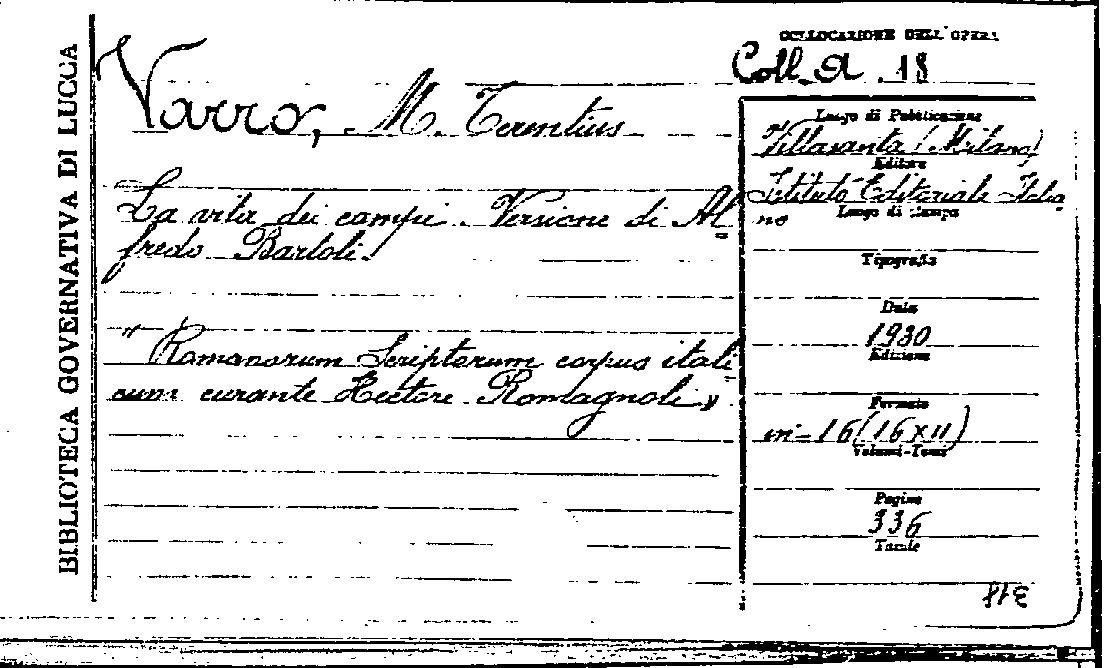 BIBLIOTECA GOVERNATIVA DI LUCCA
COLLOCAZIONE DELL'OPERA
Coll. A. 18
Varro, M. Terentius
La vita dei campi. Versione di Al
fredo Bartoli.
"Romanorum Scriptorum corpus itali
cum curante Hectore Romagnoli"
Luogo di Pubblicazione
Villasanta (Milano)
Editore
Istituto Editoriale Italia
no
Luogo di Stampa
Tipografia
Data
1930
Edizione
Formato
in-16 (16x11)
Volumi-Tomi
Pagine
336
Tavole
318